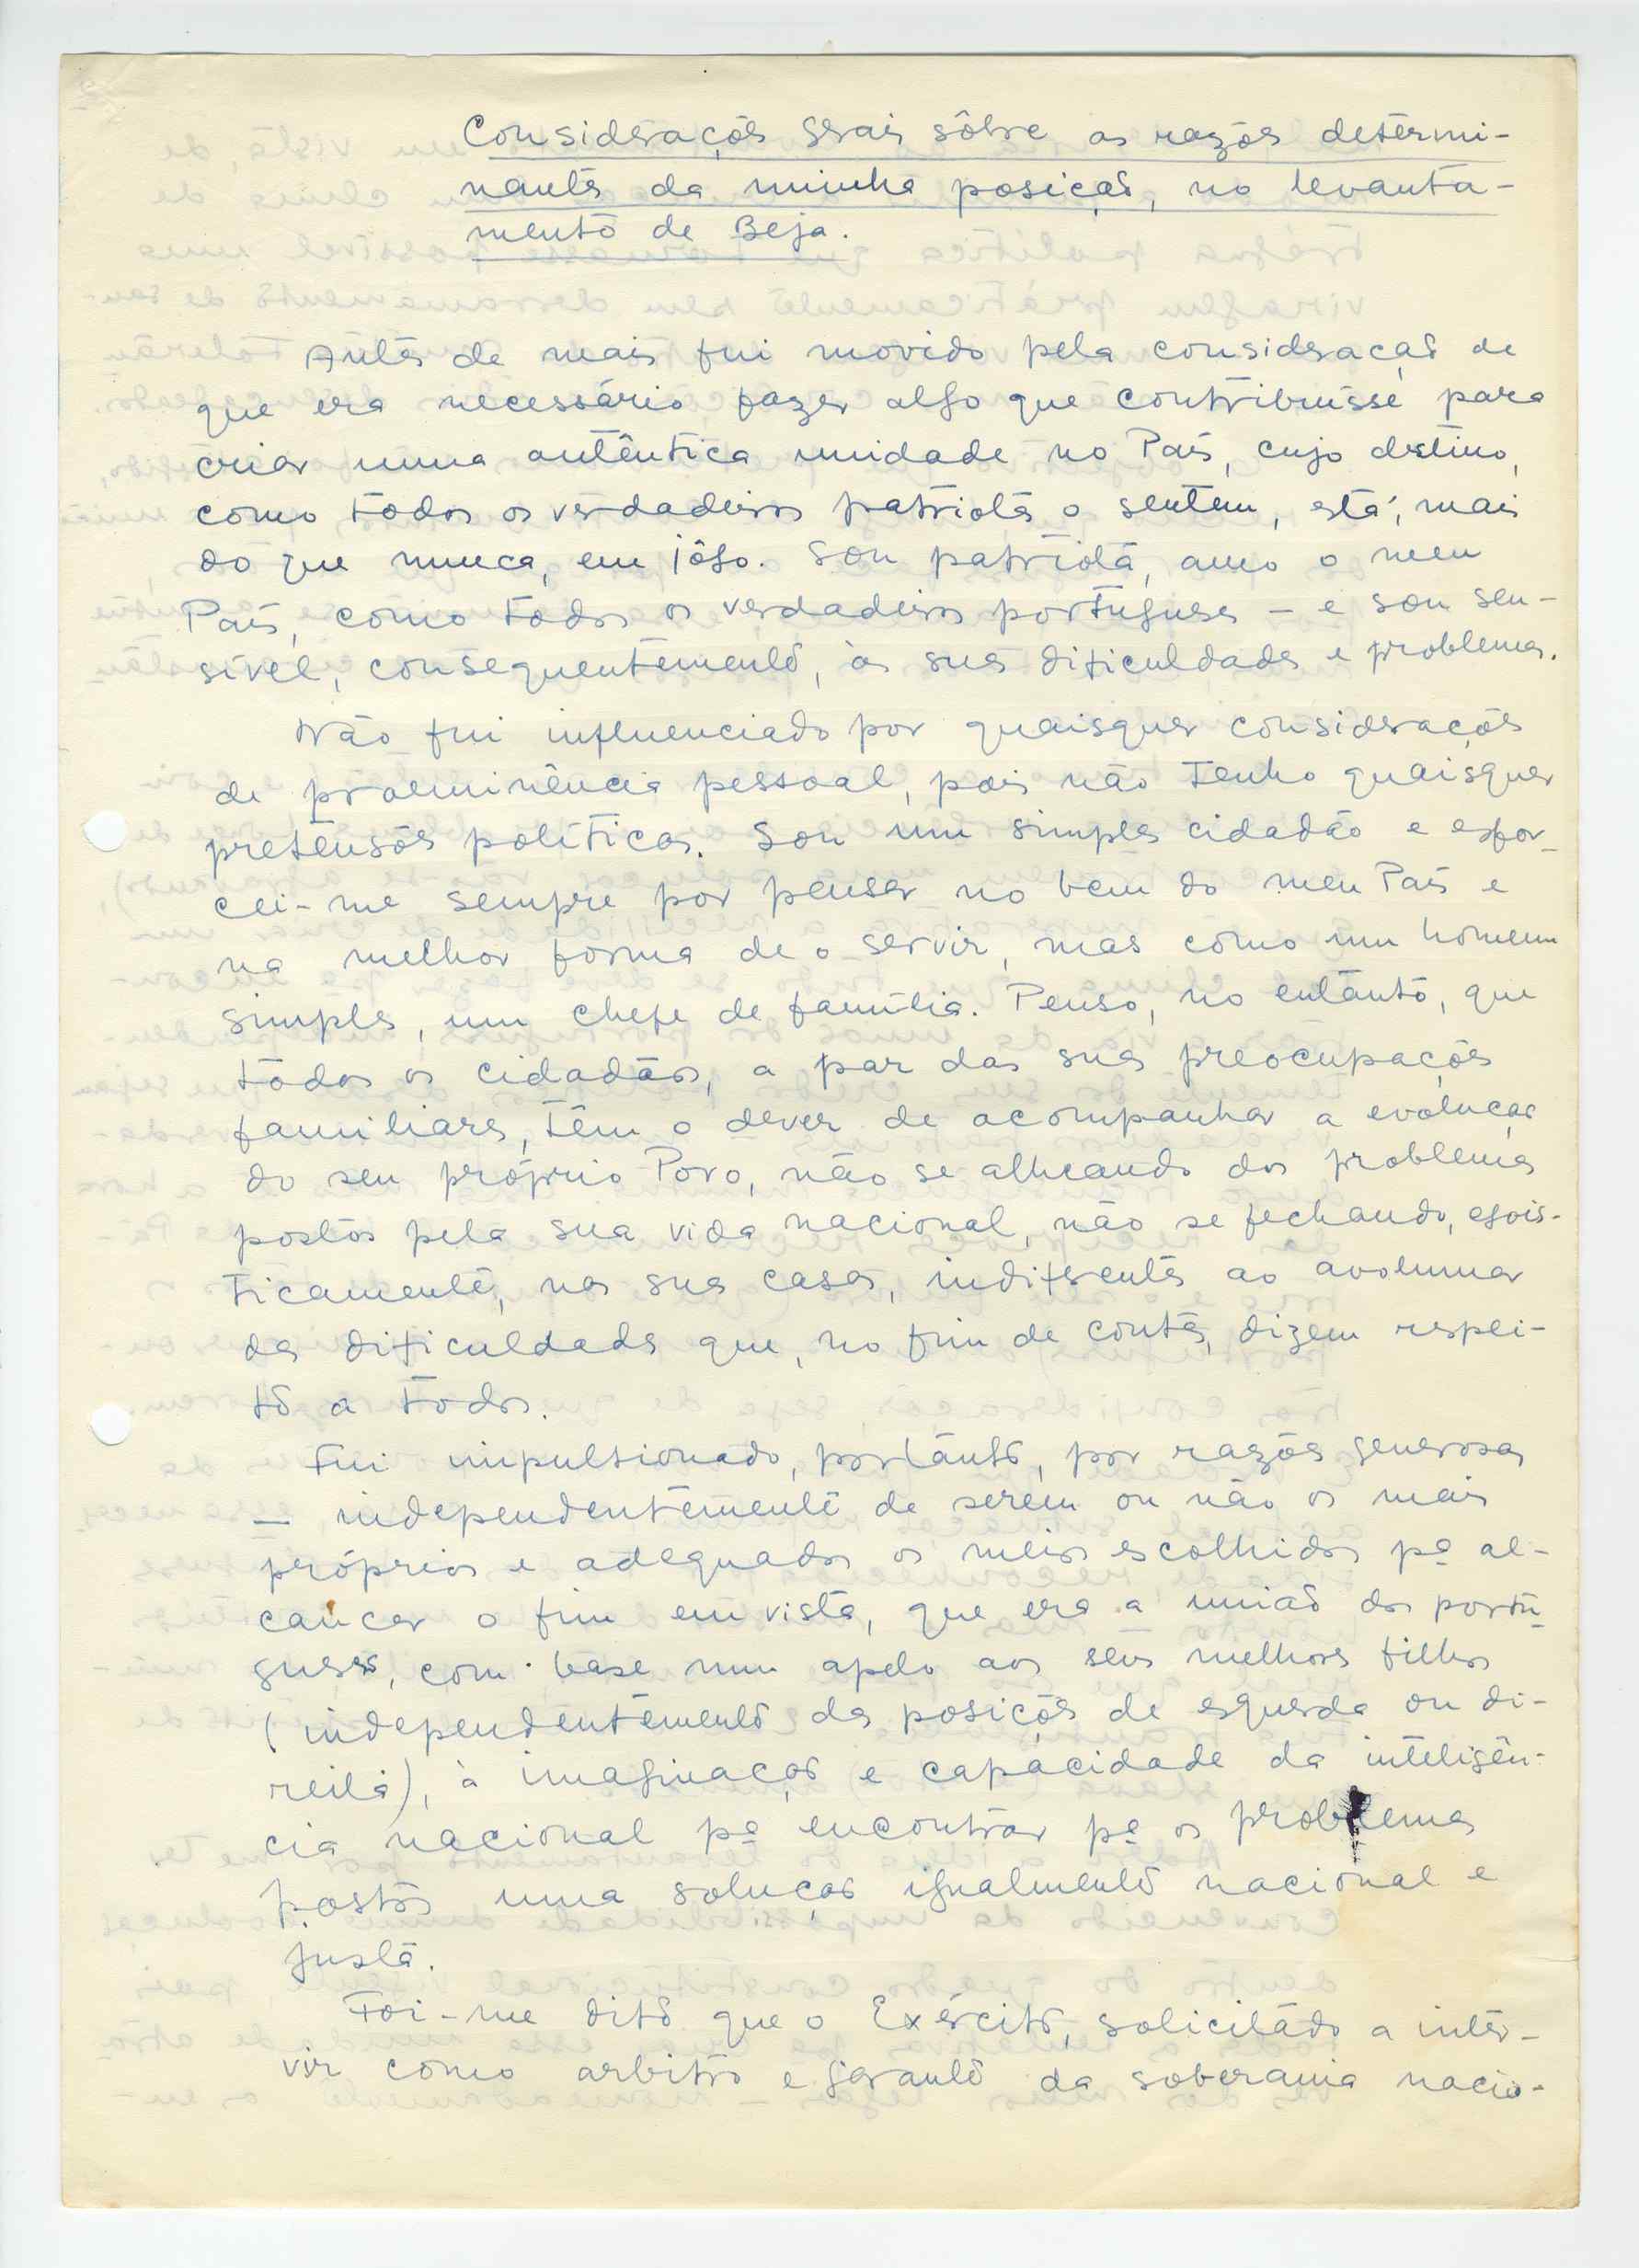 Considerações gerais sôbre as razões determi-
nantes da minha posição, no levanta-
mento de Beja.
Antes de mais fui movido pela consideração de
que era necessário fazer algo que contribuisse para
criar numa autêntica unidade no País, cujo destino,
como todos os verdadeiros patriotas o sentem, está, mais
do que nunca, em jôgo. Sou patriota, amo o meu
País, como todos os verdadeiros portugueses – e sou sen-
sível, consequentemente, às suas dificuldades e problemas.
Não fui influenciado por quaisquer considerações
de proeminência pessoal, pois não tenho quaisquer
pretensões políticas. Sou um simples cidadão e esfor-
cei-me sempre por pensar no bem do meu País e
na melhor forma de o servir, mas como um homem
simples, um chefe de família. Penso, no entanto, que
todos os cidadãos, a par das suas preocupações
familiares, têm o dever de acompanhar a evolução
do seu próprio Povo, não se alheando dos problemas
postos pela sua vida nacional, não se fechando, egois-
ticamente, nas suas casas, indiferentes ao avolumar
das dificuldades que, no fim de contas, dizem respei-
to a todos.
Fui impulsionado, portanto, por razões generosas
– independentemente de serem ou não os mais
próprios e adequados os meios escolhidos pª al-
cançar o fim em vista, que era a união dos portu-
gueses, com base num apelo aos seus melhores filhos
(independentemente das posições de esquerda ou di-
reita), à imaginação e capacidade da inteligên-
cia nacional pª encontrar pª os problemas
postos uma solução igualmente nacional e
justa.
Foi-me dito que o Exército, solicitado a inter-
vir como arbitro e garante da soberania nacio-